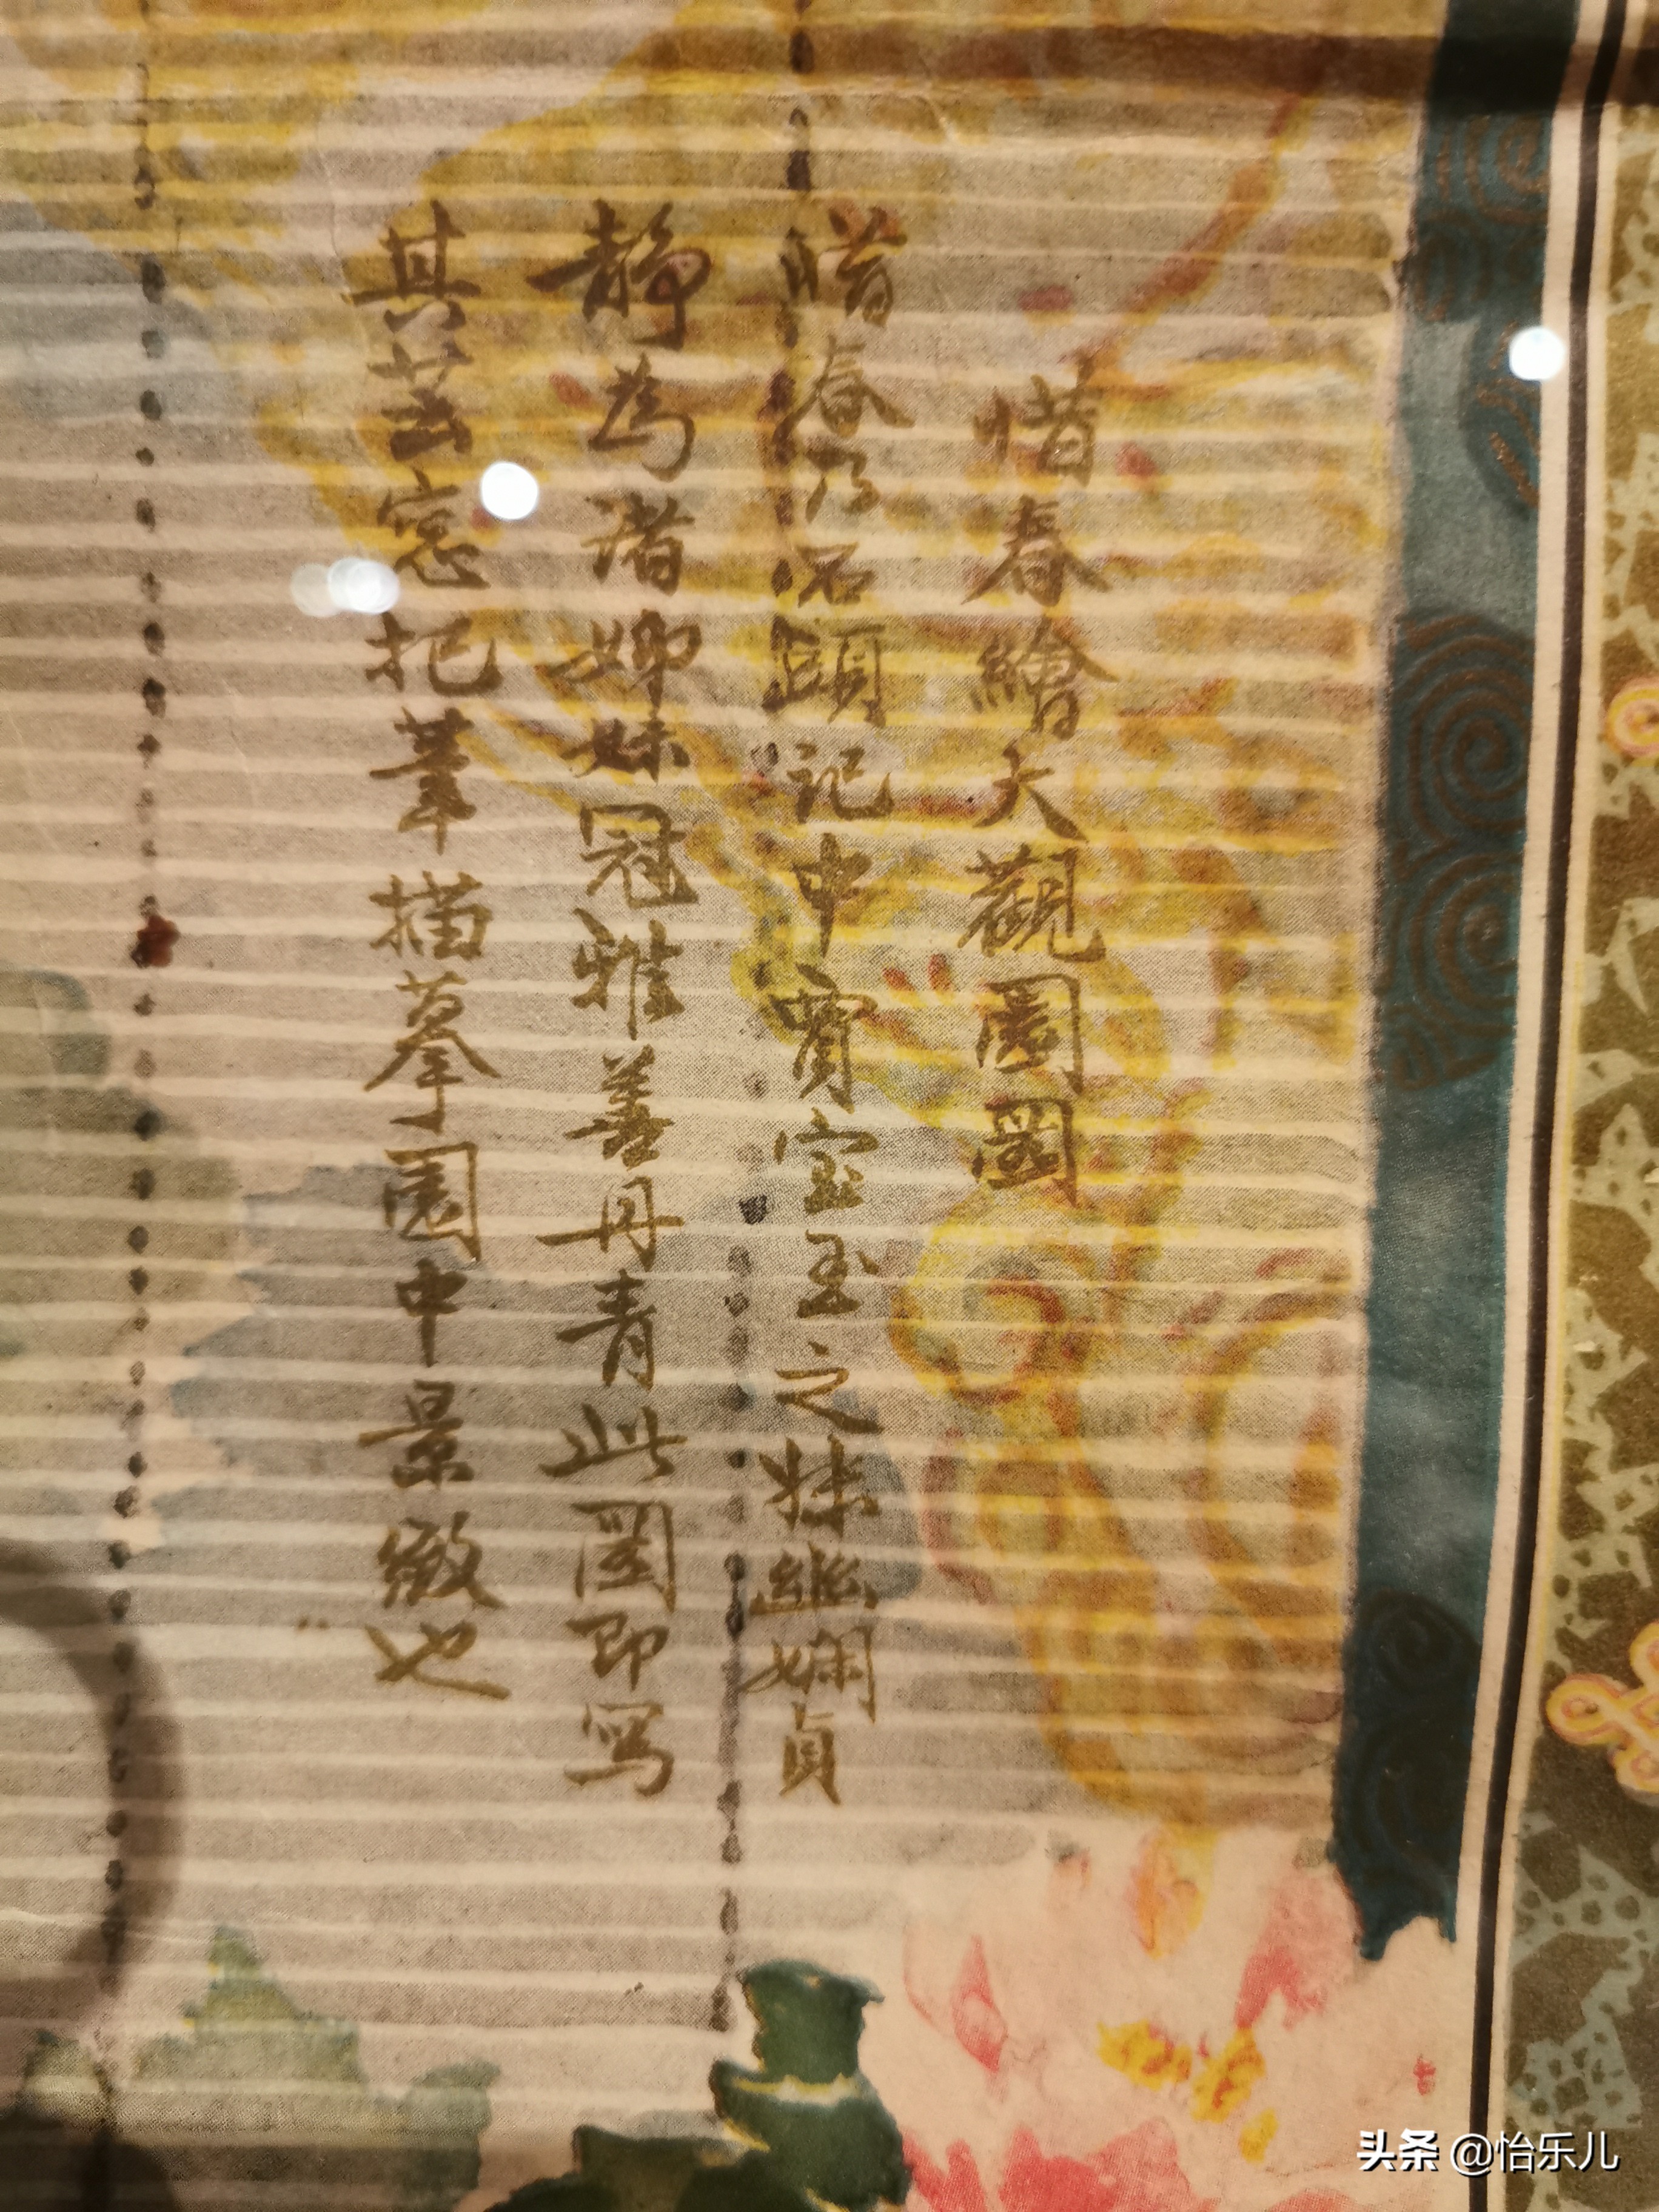 惜春繪大觀園圖
惜春乃石頭記中賈宝玉之妹幽嫻貞
静為諸姊妹冠雅善丹青此圖即写
其芸窓把筆描摹園中景緻也
头条 @怡乐儿